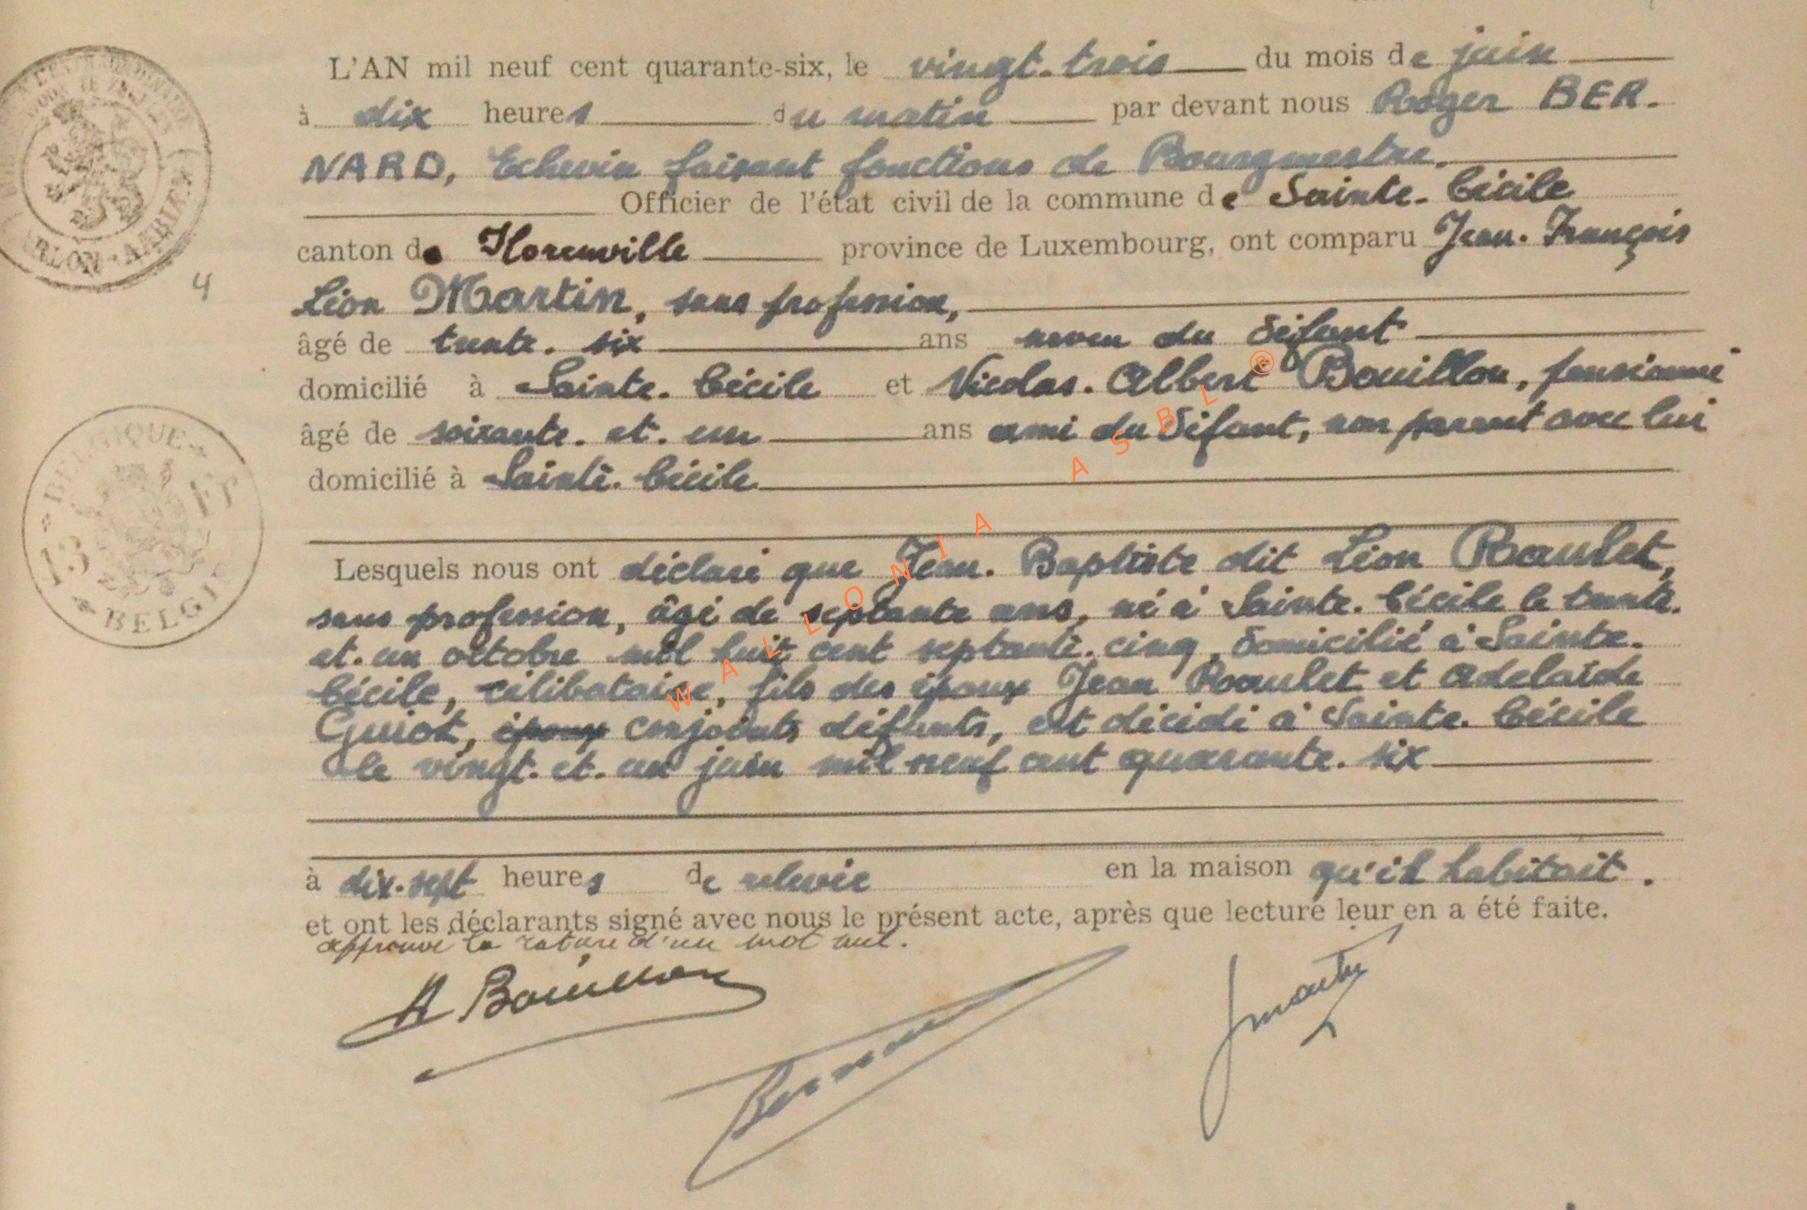 L'AN mil neuf cent quarante-six, le vingt-trois du mois de juin
à dix heures du matin par devant nous Roger BER-
NARD, Echevin faisant fonctions de Bourgmestre,
Officier de l'état civil de la commune de Sainte-Cécile
canton de Florenville province de Luxembourg, ont comparu Jean-François
Léon Martin, sans profession,
âgé de trente-six ans neveu du défunt
domicilié à Sainte-Cécile et Nicolas-Albert Bouillon, pensionné
âgé de soixante-et-un ans ami du défunt, non parent avec lui
domicilié à Sainte-Cécile
Lesquels nous ont déclaré que Jean-Baptiste dit Léon Raulet,
sans profession, âgé de septante ans, né à Sainte-Cécile le trente-
et-un octobre mil huit cent septante-cinq, domicilié à Sainte-
Cécile, célibataire, fils des époux Jean Raulet et Adelaïde
Guiot, époux conjoints défunts, est décédé à Sainte-Cécile
le vingt-et-un juin mil neuf cent quarante-six
à dix-sept heures de relevée en la maison qu'il habitait.
et ont les déclarants signé avec nous le présent acte, après que lecture leur en a été faite.
approuvé la rature d'un mot nul.
A Bouillon
Bernard
J Martin
4
BELGIQUE
13 FR
BELGIË
ARLON-AARLEN
WALLONIA ASBL®